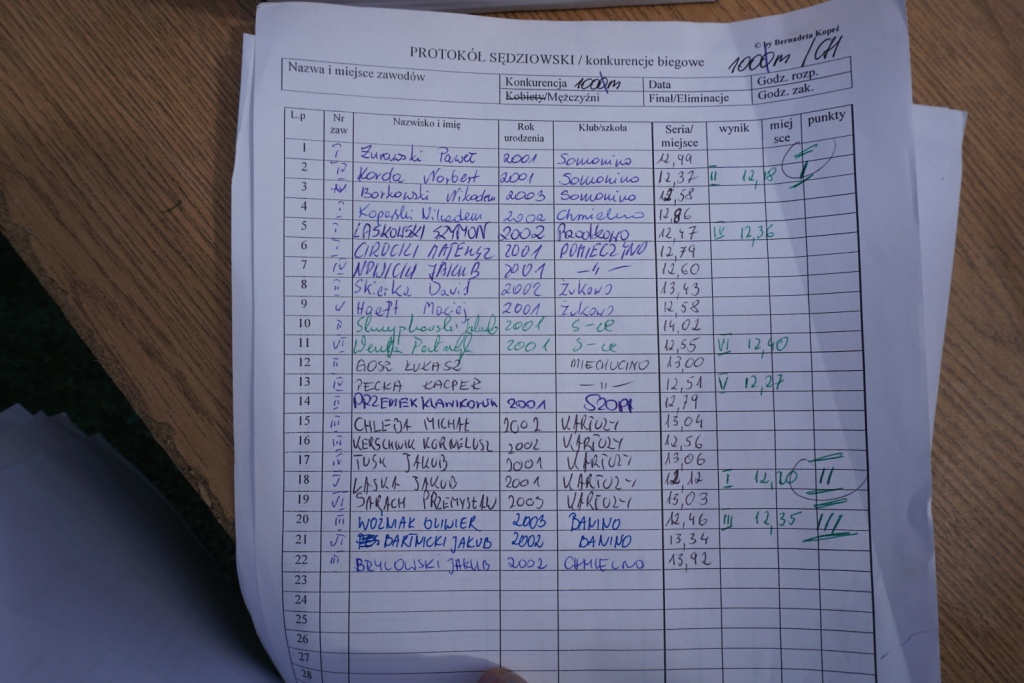 © by Bernadeta Kopeć
PROTOKÓŁ SĘDZIOWSKI / konkurencje biegowe 100m / CH
Nazwa i miejsce zawodów Konkurencja 100m Data Godz. rozp.
Kobiety/Mężczyźni Finał/Eliminacje Godz. zak.
L.p Nr zaw Nazwisko i imię Rok urodzenia Klub/szkoła Seria/miejsce wynik miejsce punkty
1 I Żurawski Paweł 2001 Somonino 12,49
2 IV Korda Norbert 2001 Somonino 12,37 II 12,18 I
3 IV Borkowski Nikodem 2003 Somonino 12,58
4 I Koperski Nikodem 2002 Chmielno 12,86
5 I LASKOWSKI SZYMON 2002 Przodkowo 12,47 IV 12,36
6 I MATEUSZ 2001 POMIECZYNO 12,79
7 IV JAKUB 2001 —〃— 12,60
8 II Skierka Dawid 2002 Żukowo 13,43
9 V Haeft Maciej 2001 Żukowo 12,58
10 II Jakub 2001 S-ce 14,02
11 VI Patryk 2001 S-ce 12,55 VI 12,40
12 II GOSZ ŁUKASZ MIECHUCINO 13,00
13 IV PECKA KACPER —〃— 12,51 V 12,27
14 II PRZEMEK 2001 SZOPA 12,79
15 III CHLEBA MICHAŁ 2002 KARTUZY 13,04
16 III KORNELIUSZ 2002 KARTUZY 12,56
17 IV TUSK JAKUB 2001 KARTUZY 13,06
18 V LASKA JAKUB 2001 KARTUZY 12,12 I 12,20 II
19 VI SARACH PRZEMYSŁAW 2003 KARTUZY 13,03
20 III WOŹNIAK OLIWIER 2003 BANINO 12,46 III 12,35 III
21 VI JAKUB 2002 BANINO 13,34
22 III BRYLOWSKI JAKUB 2002 CHMIELNO 13,92
23
24
25
26
27
28